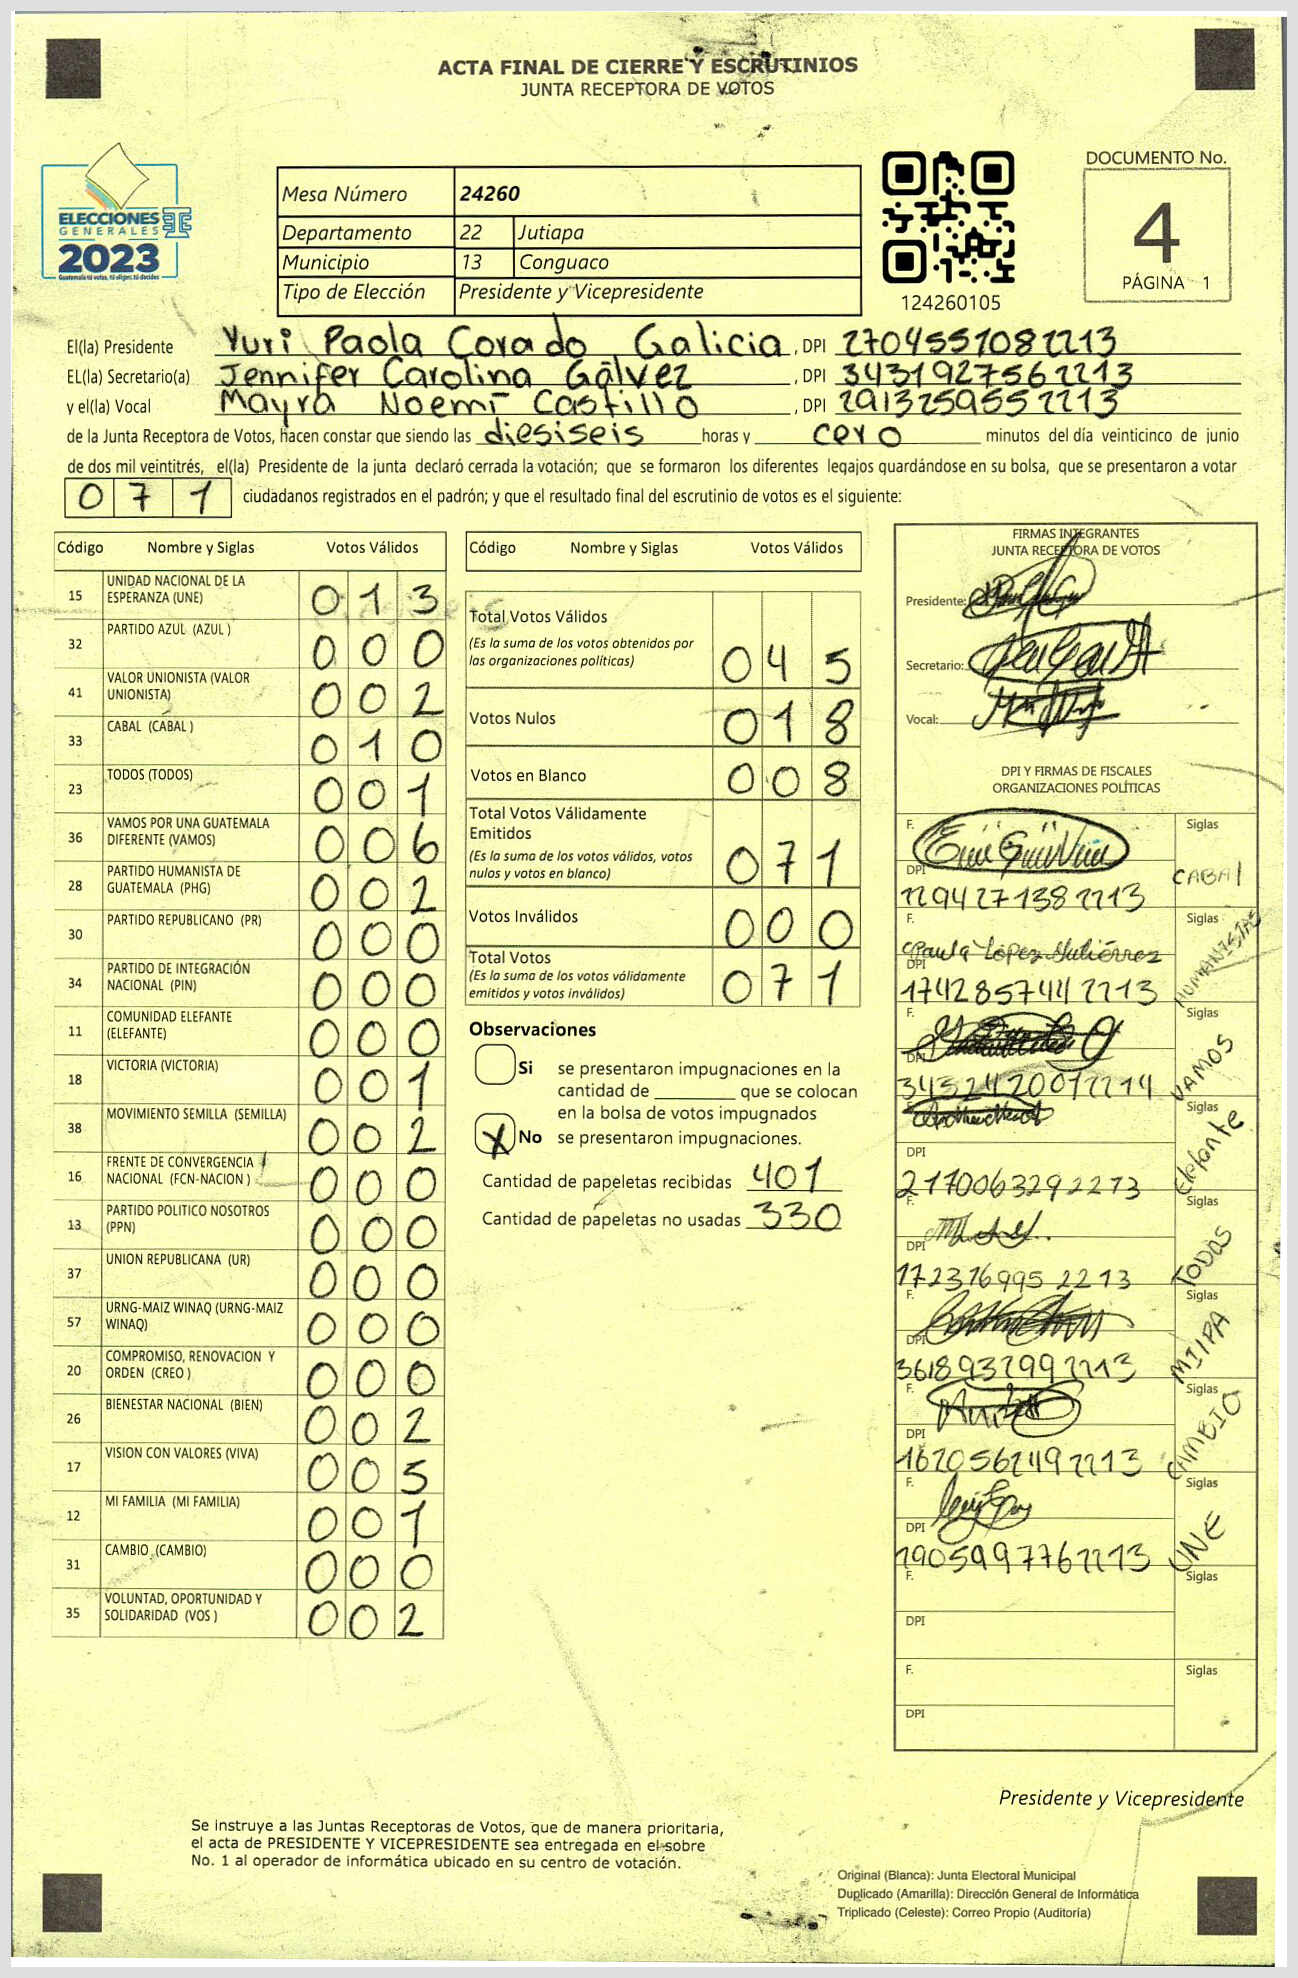 ACTA FINAL DE CIERRE Y ESCRUTINIOS
JUNTA RECEPTORA DE VOTOS
ELECCIONES
GENERALES
2023
Guatemala tú votas, tú eliges, tú decides
Mesa Número 24260
Departamento 22 Jutiapa
Municipio 13 Conguaco
Tipo de Elección Presidente y Vicepresidente
124260105
DOCUMENTO No.
4
PÁGINA 1
El(la) Presidente Yuri Paola Corado Galicia, DPI 2704551082213
EL(la) Secretario(a) Jennifer Carolina Gálvez, DPI 3431927562213
y el(la) Vocal Mayra Noemí Castillo, DPI 2913259552213
de la Junta Receptora de Votos, hacen constar que siendo las diesiseis horas y cero minutos del día veinticinco de junio
de dos mil veintitrés, el(la) Presidente de la junta declaró cerrada la votación; que se formaron los diferentes legajos guardándose en su bolsa, que se presentaron a votar
071 ciudadanos registrados en el padrón; y que el resultado final del escrutinio de votos es el siguiente:
Código Nombre y Siglas Votos Válidos
15 UNIDAD NACIONAL DE LA ESPERANZA (UNE) 013
32 PARTIDO AZUL (AZUL ) 000
41 VALOR UNIONISTA (VALOR UNIONISTA) 002
33 CABAL (CABAL ) 010
23 TODOS (TODOS) 001
36 VAMOS POR UNA GUATEMALA DIFERENTE (VAMOS) 006
28 PARTIDO HUMANISTA DE GUATEMALA (PHG) 002
30 PARTIDO REPUBLICANO (PR) 000
34 PARTIDO DE INTEGRACIÓN NACIONAL (PIN) 000
11 COMUNIDAD ELEFANTE (ELEFANTE) 000
18 VICTORIA (VICTORIA) 001
38 MOVIMIENTO SEMILLA (SEMILLA) 002
16 FRENTE DE CONVERGENCIA NACIONAL (FCN-NACION ) 000
13 PARTIDO POLITICO NOSOTROS (PPN) 000
37 UNION REPUBLICANA (UR) 000
57 URNG-MAIZ WINAQ (URNG-MAIZ WINAQ) 000
20 COMPROMISO, RENOVACION Y ORDEN (CREO ) 000
26 BIENESTAR NACIONAL (BIEN) 002
17 VISION CON VALORES (VIVA) 005
12 MI FAMILIA (MI FAMILIA) 001
31 CAMBIO (CAMBIO) 000
35 VOLUNTAD, OPORTUNIDAD Y SOLIDARIDAD (VOS ) 002
Código Nombre y Siglas Votos Válidos
Total Votos Válidos
(Es la suma de los votos obtenidos por las organizaciones políticas) 045
Votos Nulos 018
Votos en Blanco 008
Total Votos Válidamente Emitidos
(Es la suma de los votos válidos, votos nulos y votos en blanco) 071
Votos Inválidos 000
Total Votos
(Es la suma de los votos válidamente emitidos y votos inválidos) 071
Observaciones
Si se presentaron impugnaciones en la
cantidad de ________ que se colocan
en la bolsa de votos impugnados
X No se presentaron impugnaciones.
Cantidad de papeletas recibidas 401
Cantidad de papeletas no usadas 330
FIRMAS INTEGRANTES
JUNTA RECEPTORA DE VOTOS
Presidente:
Secretario:
Vocal:
DPI Y FIRMAS DE FISCALES
ORGANIZACIONES POLÍTICAS
F. Siglas
DPI 2294271382213 CABAL
F. Paula López Gutiérrez Siglas
DPI 1742857442213 HUMANISTAS
F. Siglas
DPI 3432420072214 VAMOS
F. Siglas
DPI
2170063292213 Elefante
F. Siglas
DPI
1723769952213 TODOS
F. Siglas
DPI
3618932992213 MI IPA
F. Siglas
DPI
1620562492213 CAMBIO
F. Siglas
DPI
1905997762213 UNE
F. Siglas
DPI
F. Siglas
DPI
Presidente y Vicepresidente
Se instruye a las Juntas Receptoras de Votos, que de manera prioritaria,
el acta de PRESIDENTE Y VICEPRESIDENTE sea entregada en el sobre
No. 1 al operador de informática ubicado en su centro de votación.
Original (Blanca): Junta Electoral Municipal
Duplicado (Amarilla): Dirección General de Informática
Triplicado (Celeste): Correo Propio (Auditoría)